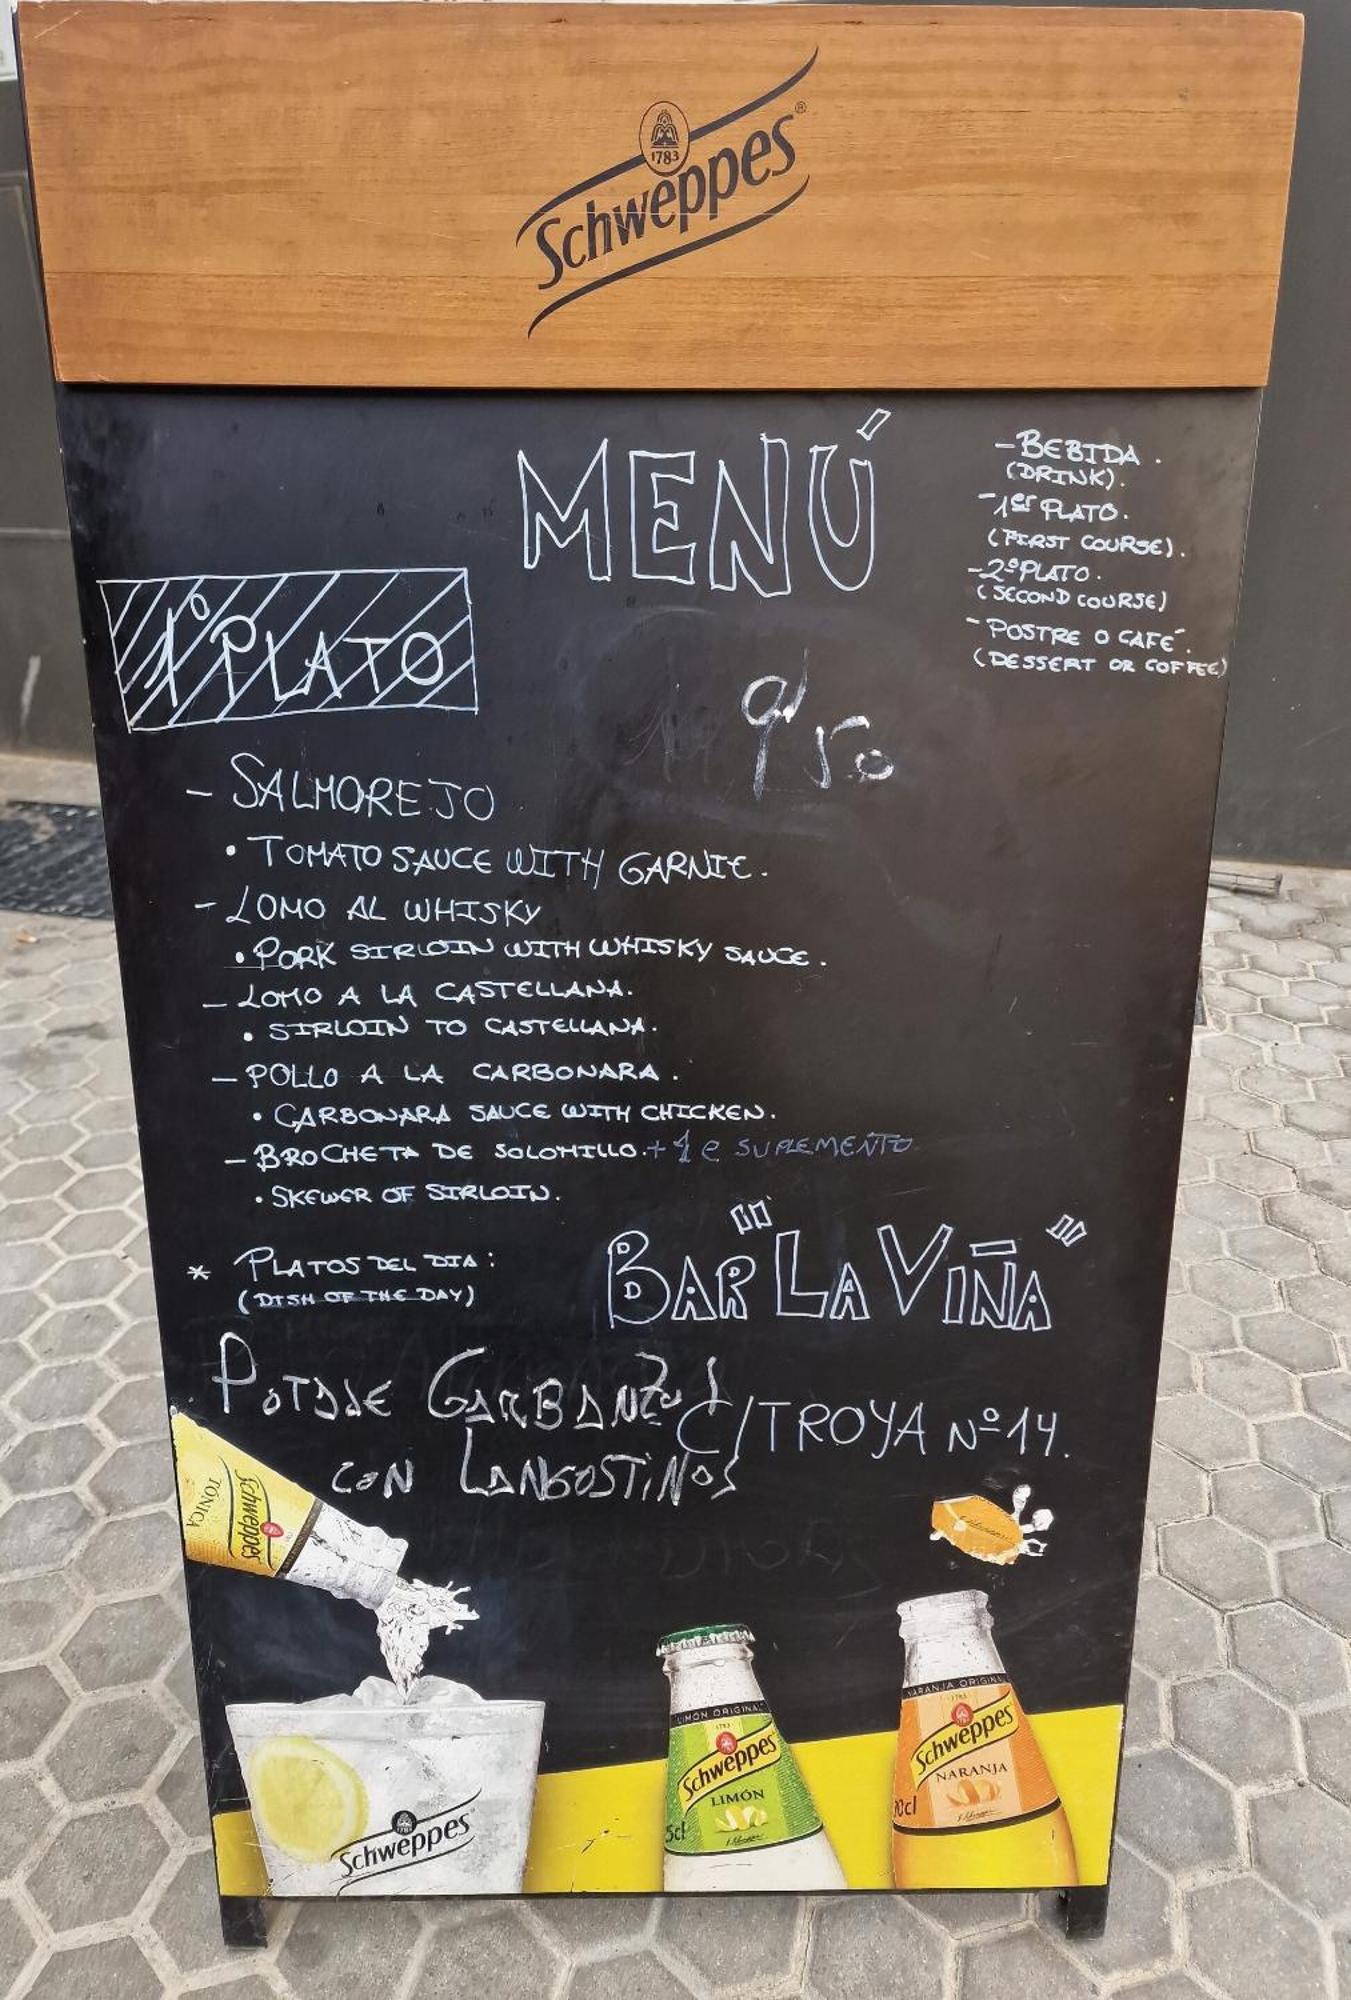 1783
Schweppes
MENÚ
- BEBIDA.
(DRINK).
- 1er PLATO.
(FIRST COURSE).
- 2º PLATO.
(SECOND COURSE)
- POSTRE O CAFÉ.
(DESSERT OR COFFEE)
1º PLATO
9'50
- SALMOREJO
• TOMATO SAUCE WITH GARNIE.
- LOMO AL WHISKY
• PORK SIRLOIN WITH WHISKY SAUCE.
- LOMO A LA CASTELLANA.
• SIRLOIN TO CASTELLANA.
- POLLO A LA CARBONARA.
• CARBONARA SAUCE WITH CHICKEN.
- BROCHETA DE SOLOMILLO. + 1 e SUPLEMENTO
• SKEWER OF SIRLOIN.
* PLATOS DEL DIA:
(DISH OF THE DAY)
BAR "LA VIÑA"
POTAJE GARBANZOS
CON LANGOSTINOS
C/TROYA Nº 14.
Schweppes
TONICA
Schweppes
LIMÓN ORIGINAL
1783
Schweppes
LIMÓN
5cl
NARANJA ORIGINAL
1783
Schweppes
NARANJA
0cl